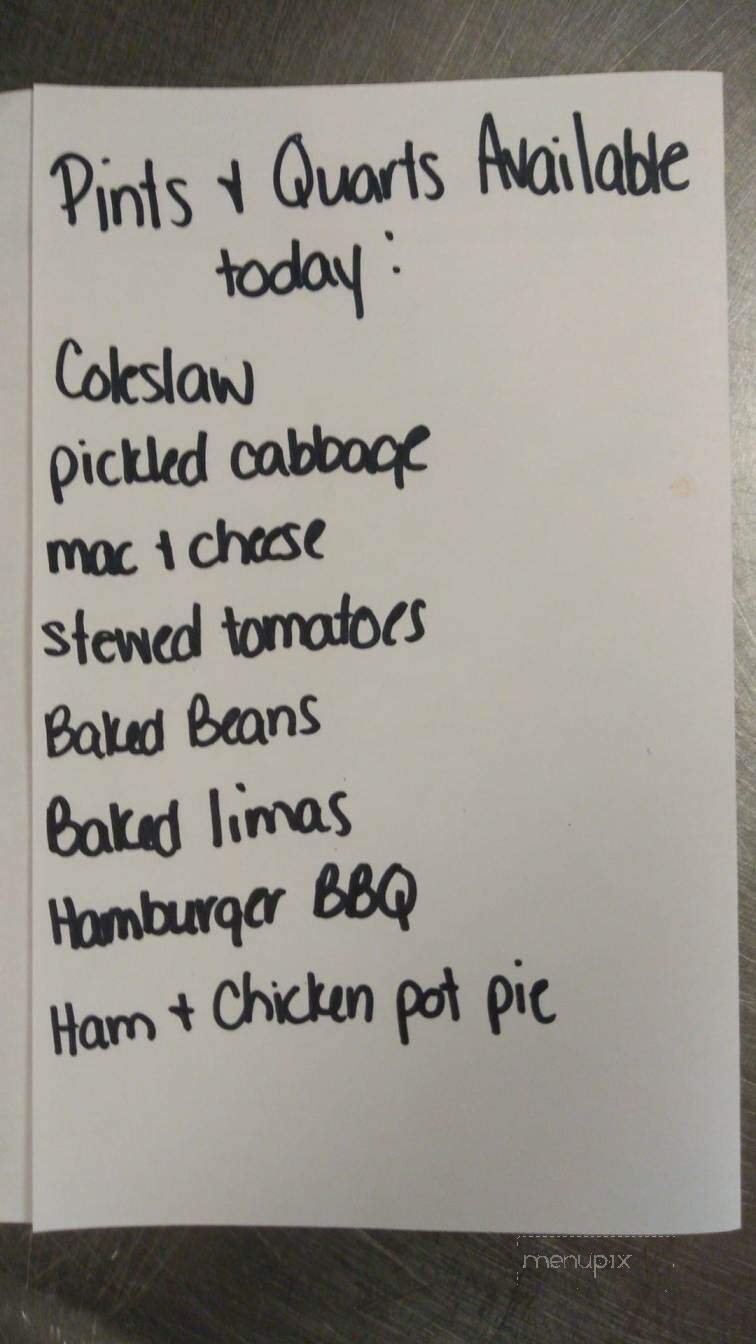 Pints + Quarts Available
today:
Coleslaw
pickled cabbage
mac + cheese
stewed tomatoes
Baked Beans
Baked limas
Hamburger BBQ
Ham + Chicken pot pie
menupix